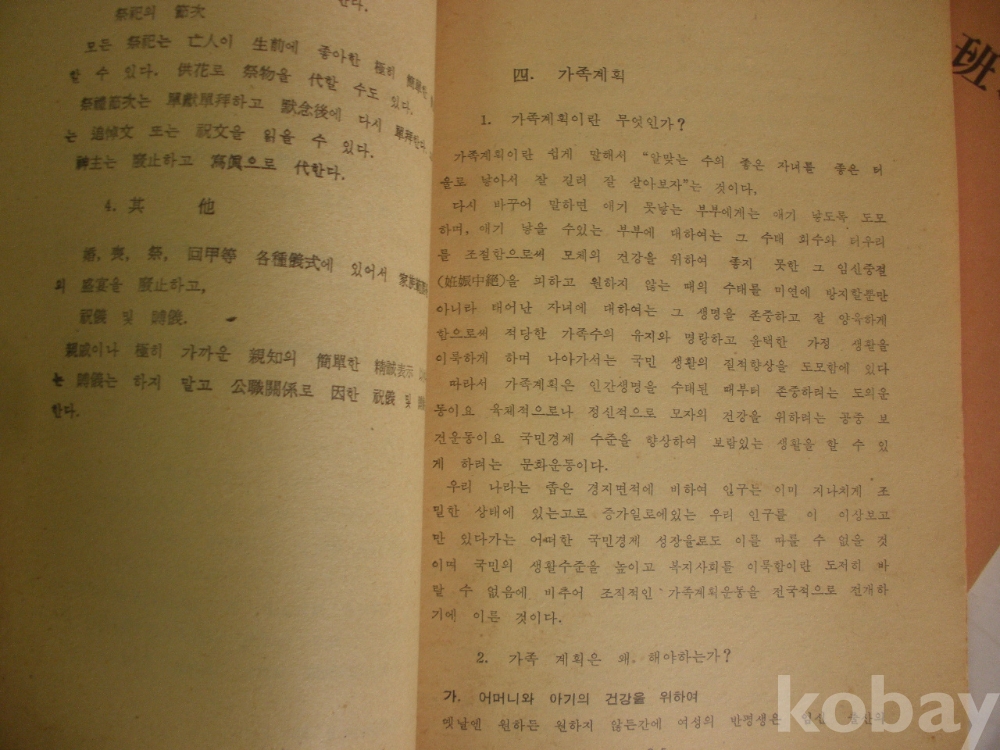 한다.
祭祀의 節次
모든 祭祀는 亡人이 生前에 좋아한 極히 簡單한
할 수 있다. 供花로 祭物을 代할 수도 있다.
祭禮節次는 單獻單拜하고 默念後에 다시 單拜한다.
는 追悼文 또는 祝文을 읽을 수 있다.
神主는 廢止하고 寫眞으로 代한다.
4. 其 他
婚, 喪, 祭, 回甲等 各種儀式에 있어서
의 盛宴을 廢止하고,
祝儀 및 賻儀.
親戚이나 極히 가까운 親知의 簡單한 精誠表示
는 賻儀는 하지 말고 公職關係로 因한 祝儀 및
한다.
四. 가족계획
1. 가족계획이란 무엇인가?
가족계획이란 쉽게 말해서 “알맞는 수의 좋은 자녀를 좋은 터
울로 낳아서 잘 길러 잘 살아보자”는 것이다,
다시 바꾸어 말하면 애기 못낳는 부부에게는 애기 낳도록 도모
하며, 애기 낳을 수있는 부부에 대하여는 그 수태 회수와 터우리
를 조절함으로써 모체의 건강을 위하여 좋지 못한 그 임신중절
(姙娠中絕)을 피하고 원하지 않는 때의 수태를 미연에 방지할뿐만
아니라 태어난 자녀에 대하여는 그 생명을 존중하고 잘 양육하게
함으로써 적당한 가족수의 유지와 명랑하고 윤택한 가정 생활을
이룩하게 하며 나아가서는 국민 생활의 질적향상을 도모함에 있다
따라서 가족계획은 인간생명을 수태된 때부터 존중하려는 도의운
동이요 육체적으로나 정신적으로 모자의 건강을 위하려는 공중 보
건운동이요 국민경제 수준을 향상하여 보람있는 생활을 할 수 있
게 하려는 문화운동이다.
우리 나라는 좁은 경지면적에 비하여 인구는 이미 지나치게 조
밀한 상태에 있는고로 증가일로에있는 우리 인구를 이 이상보고
만 있다가는 어떠한 국민경제 성장율로도 이를 따를 수 없을 것
이며 국민의 생활수준을 높이고 복지사회를 이룩함이란 도저히 바
랄 수 없음에 비추어 조직적인 가족계획운동을 전국적으로 전개하
기에 이른 것이다.
2. 가족 계획은 왜 해야하는가?
가. 어머니와 아기의 건강을 위하여
옛날엔 원하든 원하지 않든간에 여성의 반평생은 임신
班
kobay